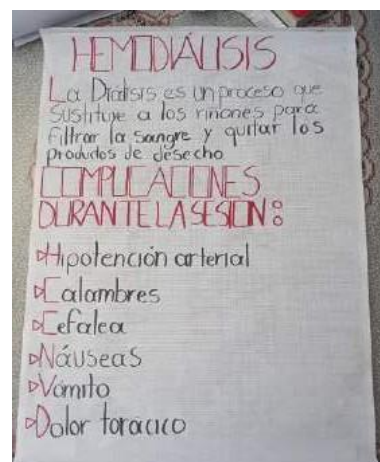 HEMODIÁLISIS
La Diálisis es un proceso que
sustituye a los riñones para
filtrar la sangre y quitar los
productos de desecho
COMPLICACIONES
DURANTE LA SESION:
Hipotención arterial
Calambres
Cefalea
Náuseas
Vómito
Dolor torácico